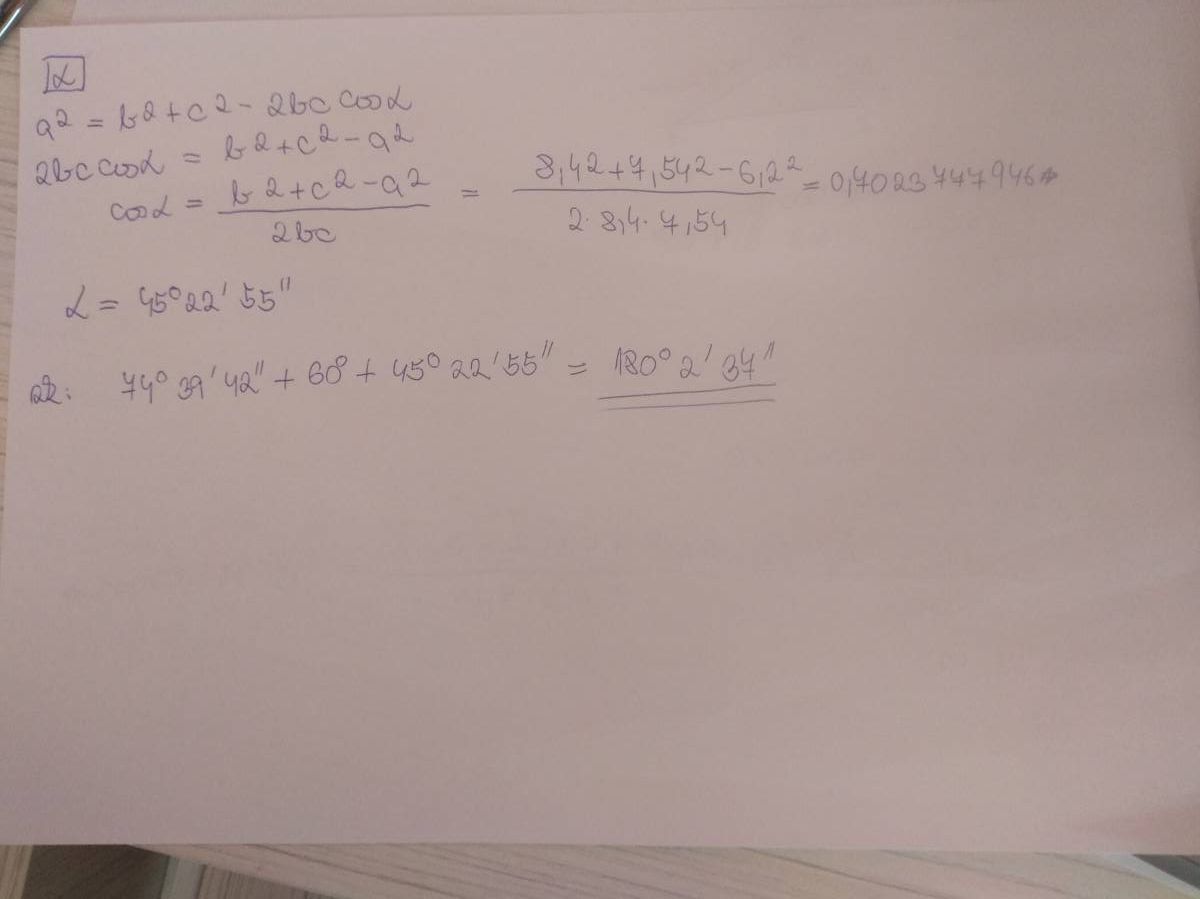 α
a² = b² + c² - 2bc cos α
2bc cos α = b² + c² - a²
cos α = (b² + c² - a²) / (2bc) = (8,4² + 7,54² - 6,2²) / (2·8,4·7,54) = 0,7023747946
α = 45° 22' 55"
74° 39' 42" + 60° + 45° 22' 55" = 180° 2' 37"